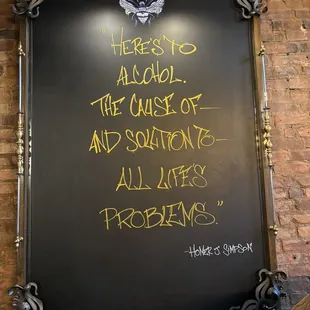 "HERE'S TO
ALCOHOL.
THE CAUSE OF—
AND SOLUTION TO—
ALL LIFE'S
PROBLEMS."
-HOMER J. SIMPSON